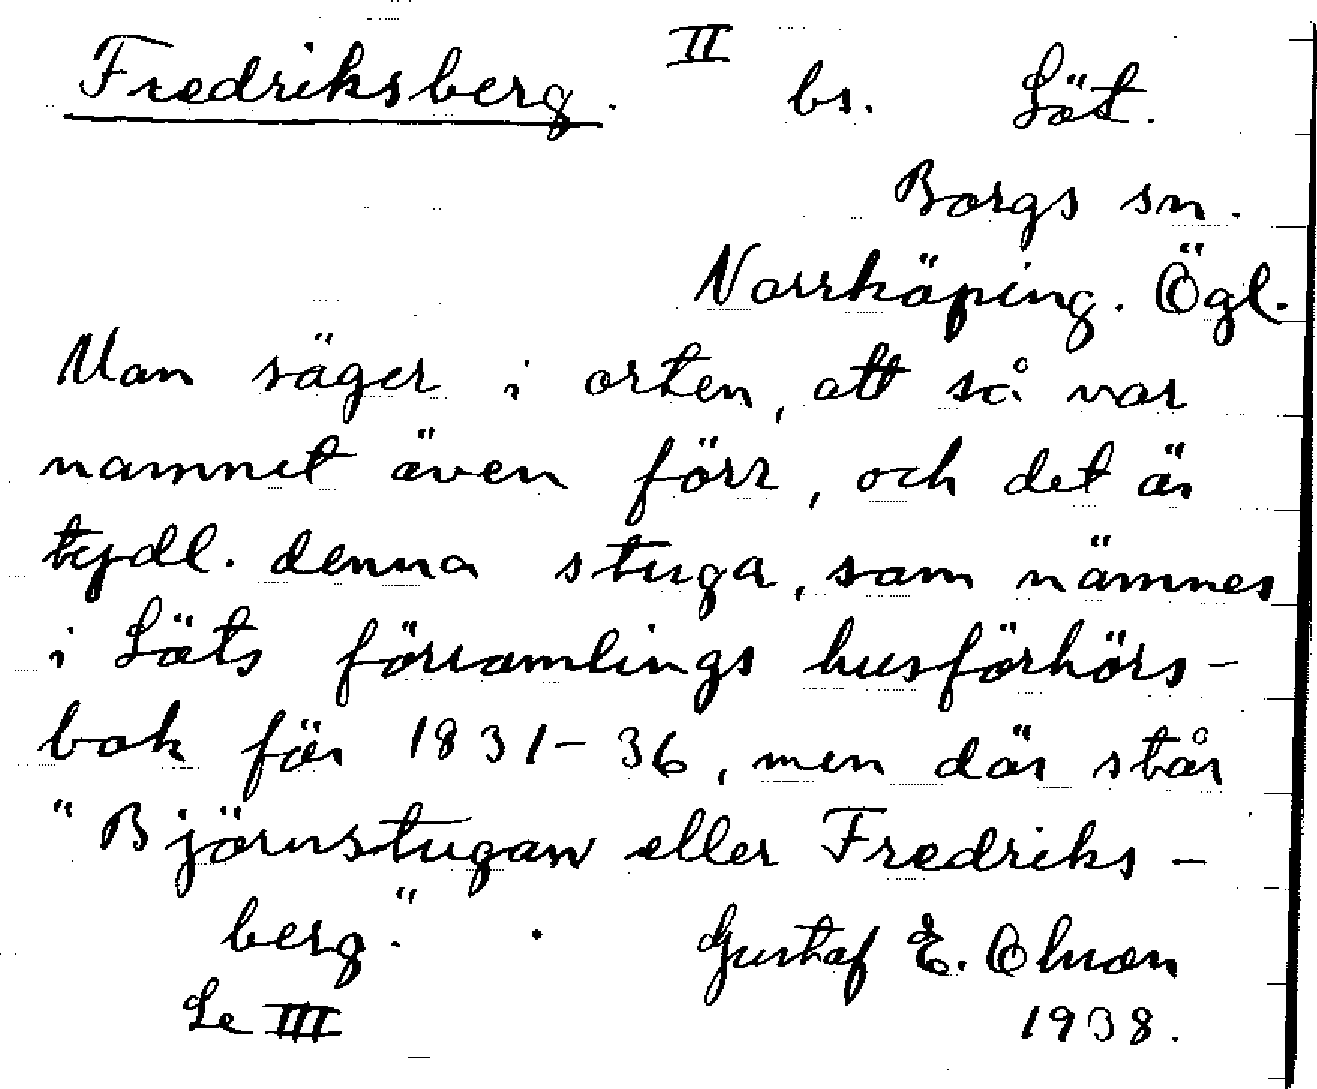 Fredriksberg. II bs. Löt.
Borgs sn.
Norrköping. Ögl.
Man säger i orten, att så var
namnet även förr, och det är
tydl. denna stuga, som nämnes
i Löts församlings husförhörs-
bok för 1831-36, men där står
"Björnstugan eller Fredriks-
berg."
Gustaf E. Olsson
Se III
1938.